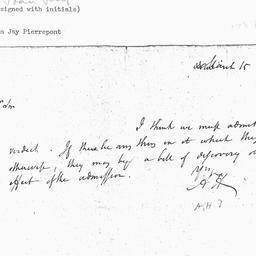 signed with initials)
Jay Pierrepont
15
I think we must admit
verdict. If there be any thing in it which they
otherwise, they may by a bill of discovery
effect of the admission.
Yrs.
AH